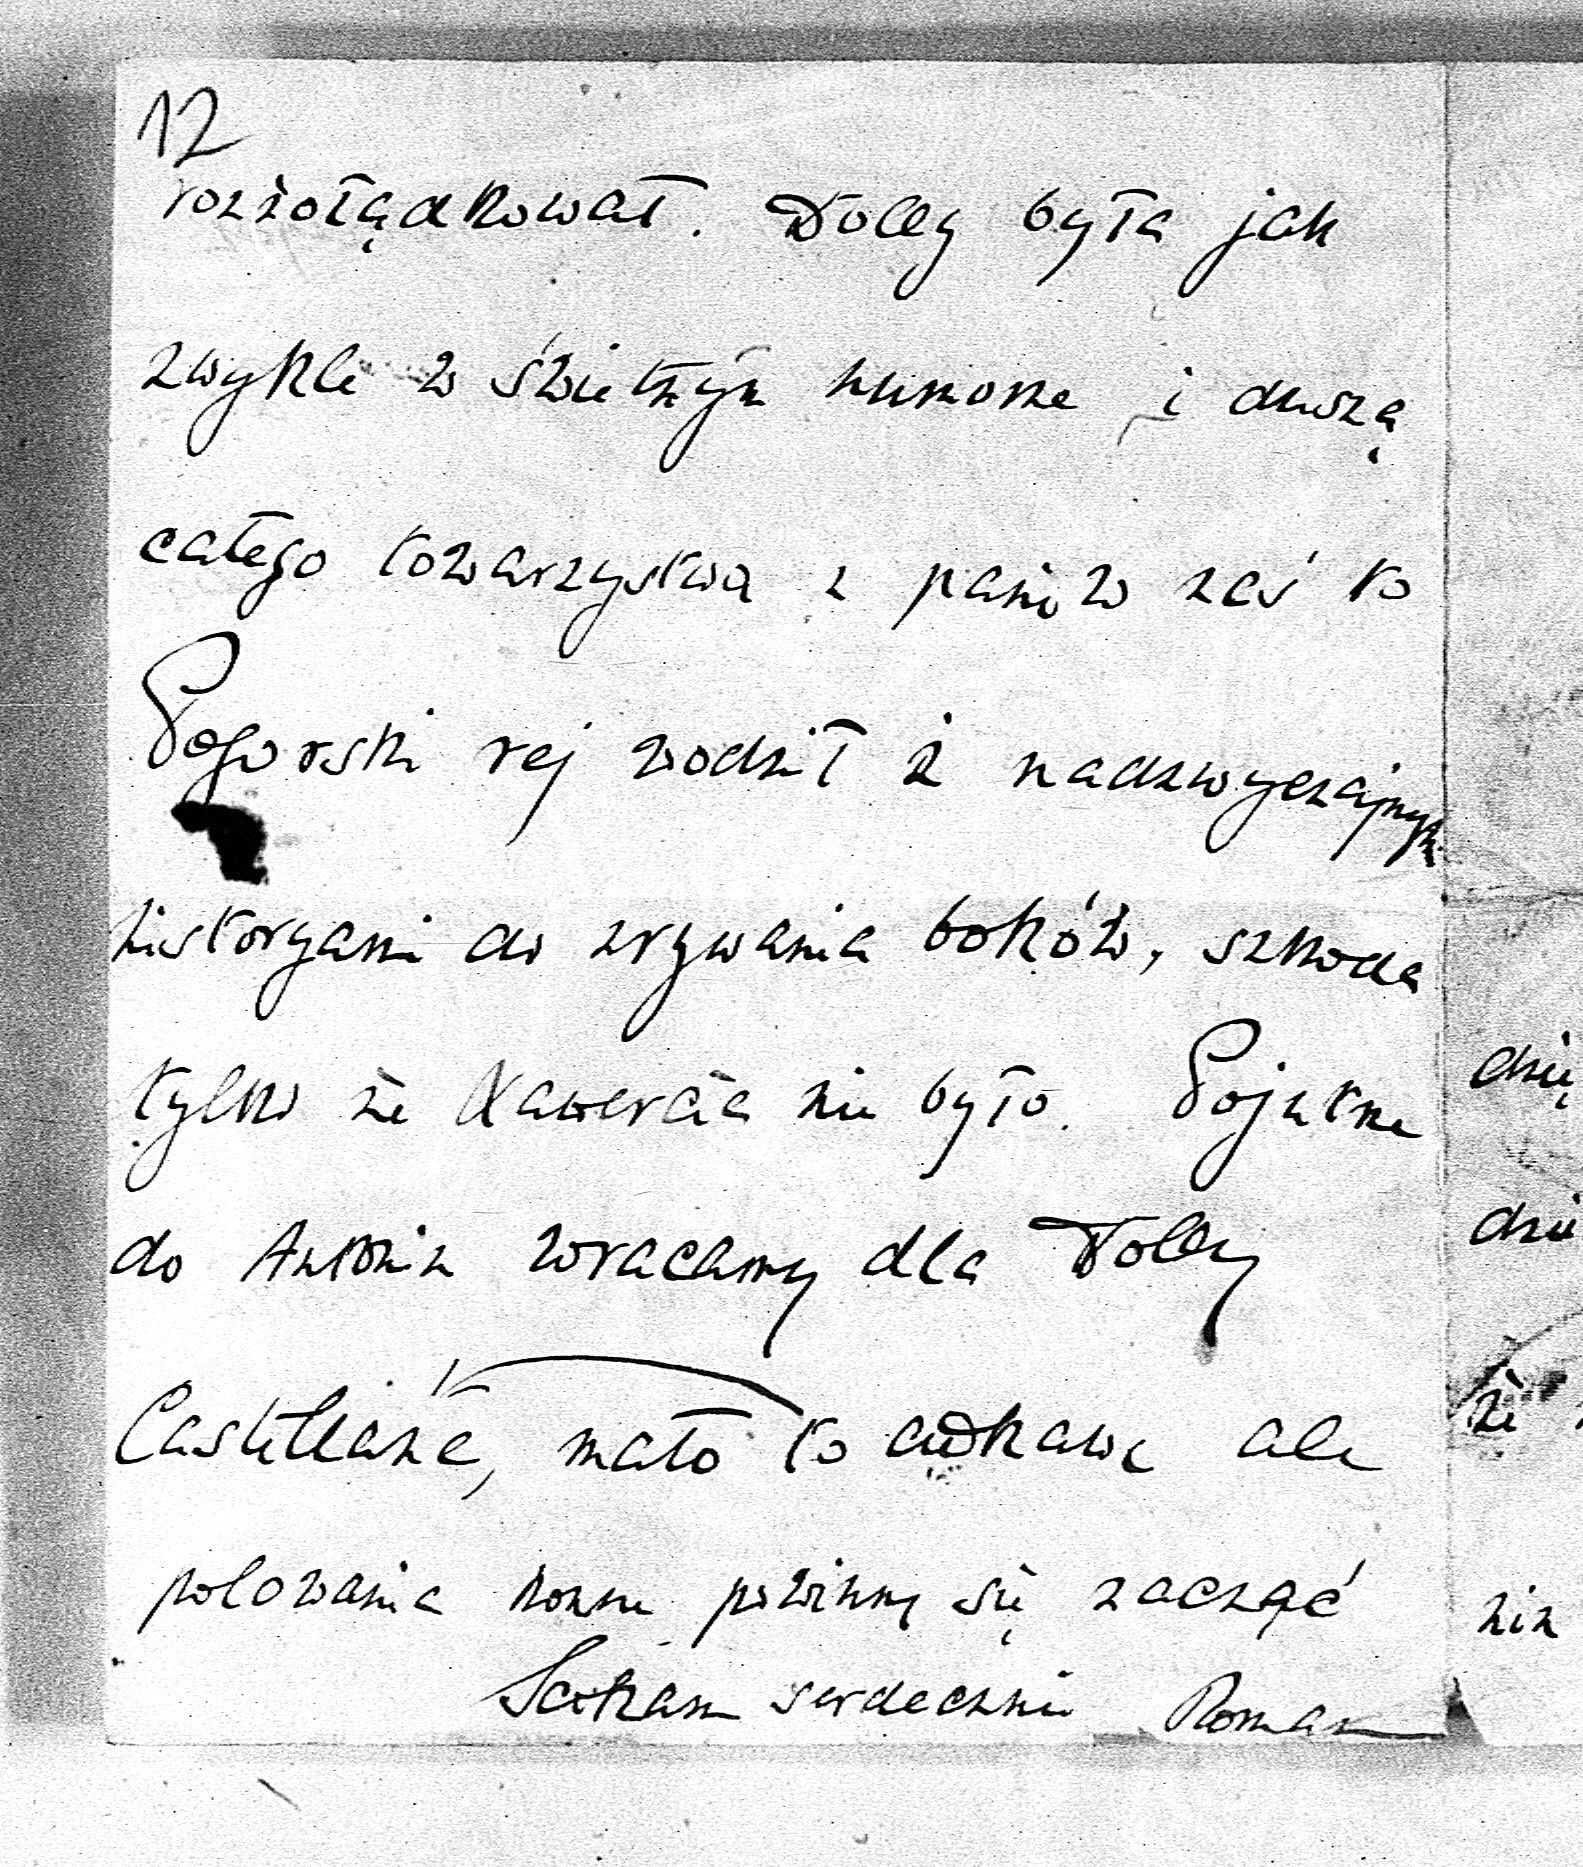 12
rozżołądkował. Dolly była jak
zwykle w świetnym humorze i duszą
całego towarzystwa z panów zaś to
Pogorski rej wodził z nadzwyczajnym
historyami do zrywania boków, szkoda
tylko że Xawercia nie było. Pojutrze
do Antonin wracamy dla Dolly
mało to ciekawe ale
polowania konne powinny się zacząć
Ściskam serdecznie Roman
dzię
dzie
że
nin